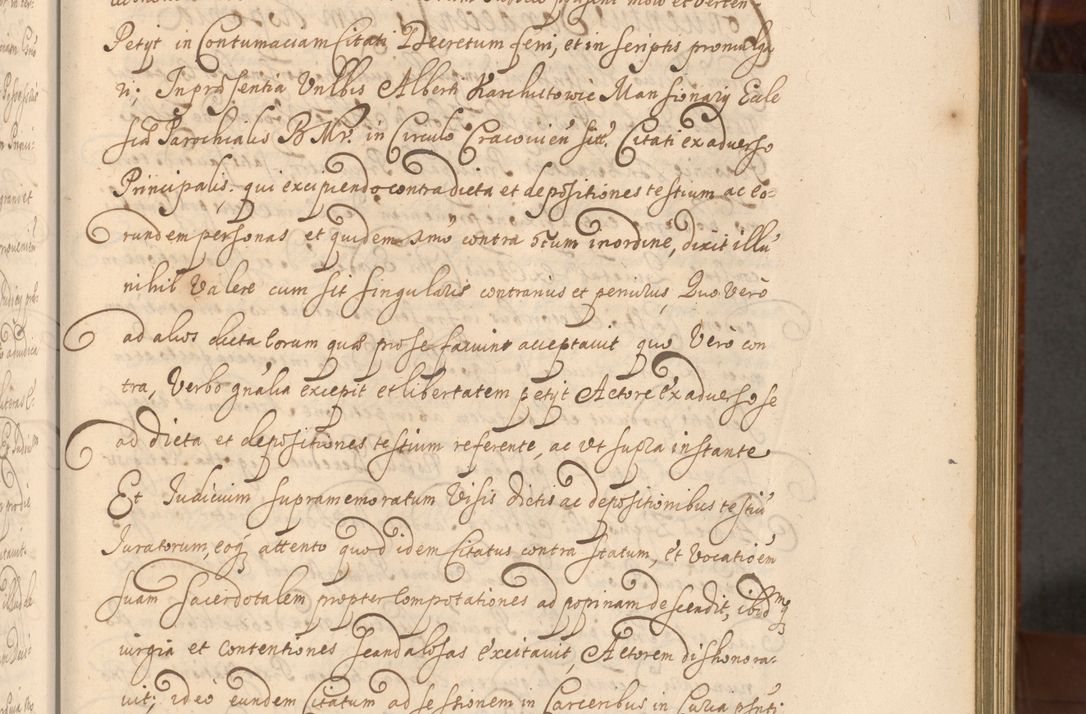 Petyt in Contumaciam Citati Decretum ferri, et in scriptis promulga
ri; In præsentia Vnlbis Alberti Karchutowic Mansionarij Eccle
siæ Parochialis B M V. in Circulo Cracovien sitt. Citati ex adverso
Principalis. qui excipiendo contra dicta et depositiones testium ac eo-
rundem personas et quidem 1mo contra 8cum in ordine, dixit illū
nihil Valere cum sit singularis contrarius et periurus, Quo Verò
ad alios dicta eorum quæ pro se faciunt acceptavit quo Verò con
tra, Verbo gnālia excepit et libertatem petyt Actore ex adverso se
ad dicta et depositiones testium referente, ac Vt supra instante
Et Iudicium supramemoratum Visis dictis ac depositionibus testiū
Iuratorum, eoq attento quod idem Citatus contra statum, et Vocatioēm
suam Sacerdotalem propter Compotationes ad popinam descendit, ibidmq
iurgia et contentiones scandalosas excitavit, Actorem dishonora-
vit; ideo eundem Citatum ad sessionem in Carceribus in Curia psnti